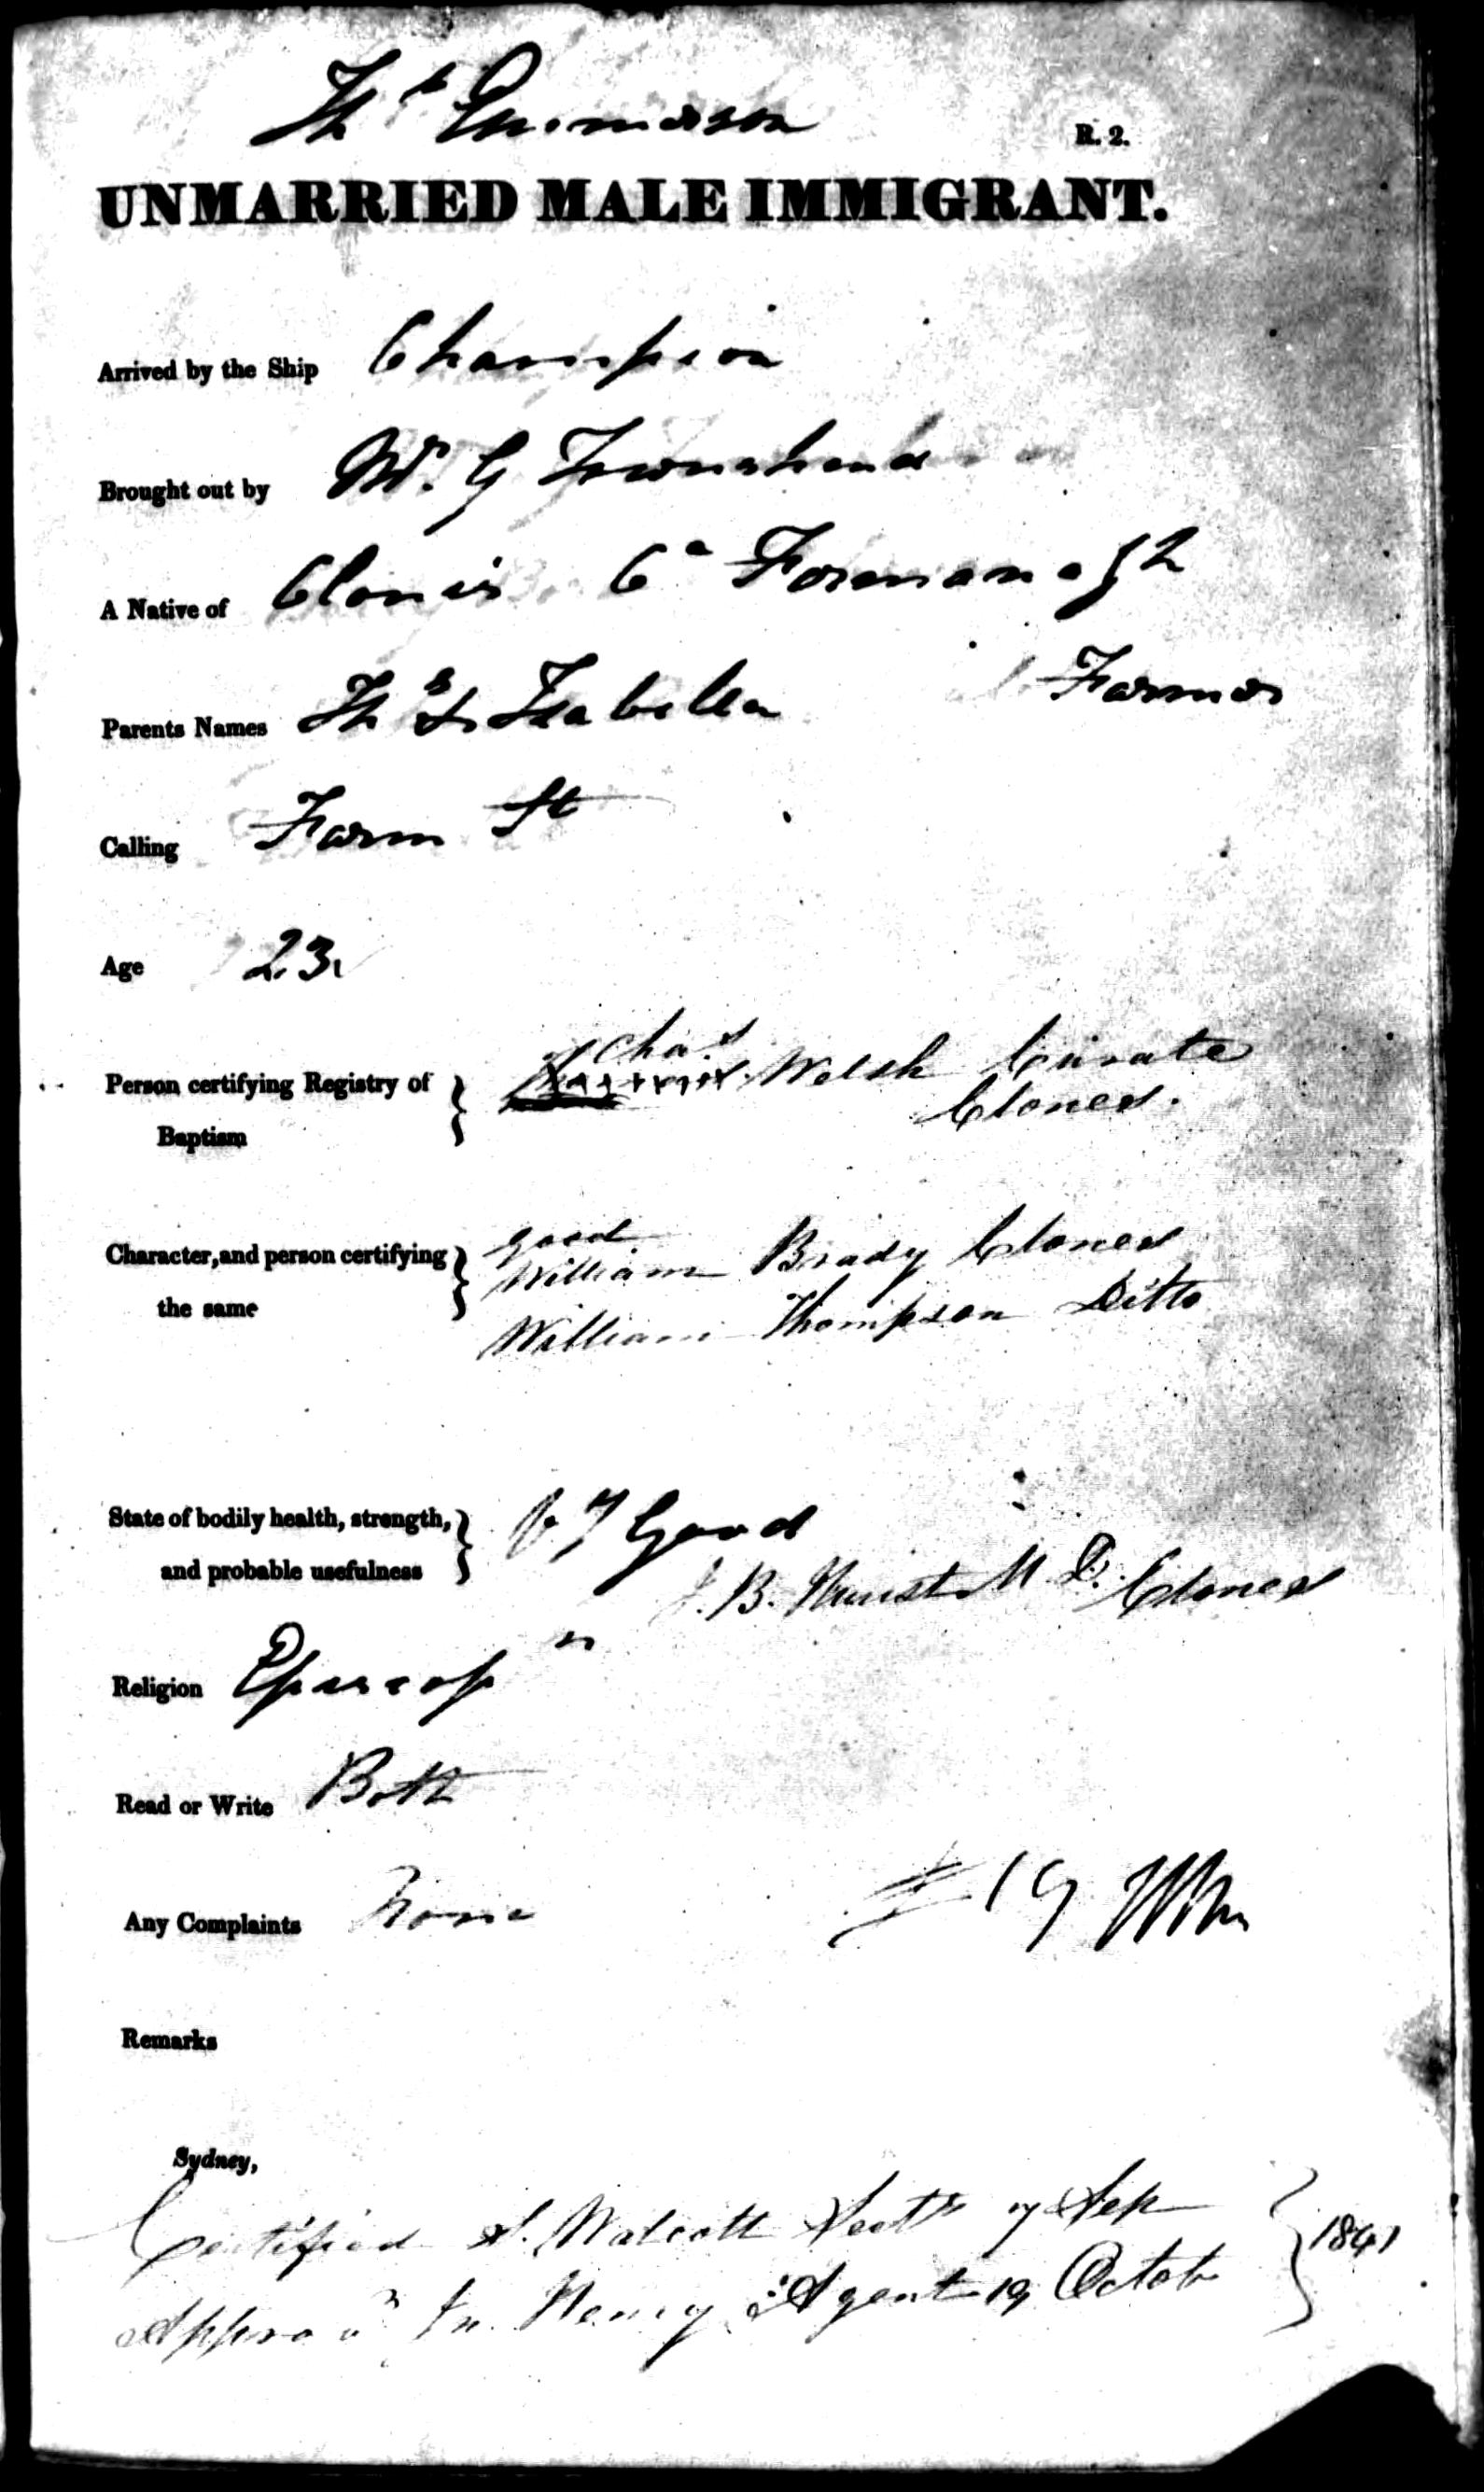 Ths
R. 2.
UNMARRIED MALE IMMIGRANT.
Arrived by the Ship Champion
Brought out by Mr. G Townshend
A Native of Clonis Co Formanagh
Parents Names Ths & Isabella Farmer
Calling Farm St
Age 23
Person certifying Registry of Baptism } Chas Welsh Curate
Clones.
Character, and person certifying the same } good
William Brady Clones
William Thompson Ditto
State of bodily health, strength, and probable usefulness } Good
J. B. M. D. Clones
Religion Episcopn
Read or Write Both
Any Complaints None
19
Remarks
Sydney,
Certified S. Walcott Secty 7 Sep } 1841
Approvd Jn. Henry Agent 19 Octobr